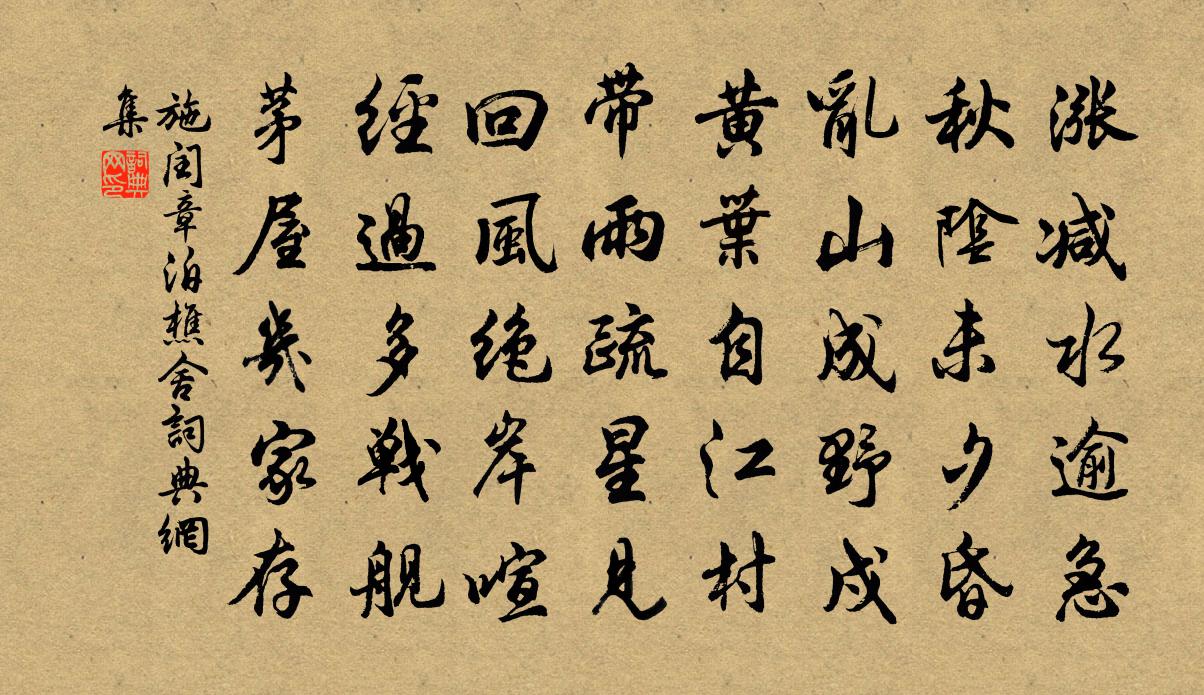 漲減水逾急
秋陰未夕昏
亂山成野戍
黃葉自江村
帶雨疏星見
回風絕岸喧
經過多戰艦
茅屋幾家存
施閏章泊樵舍詞典網
集
詞典
网印